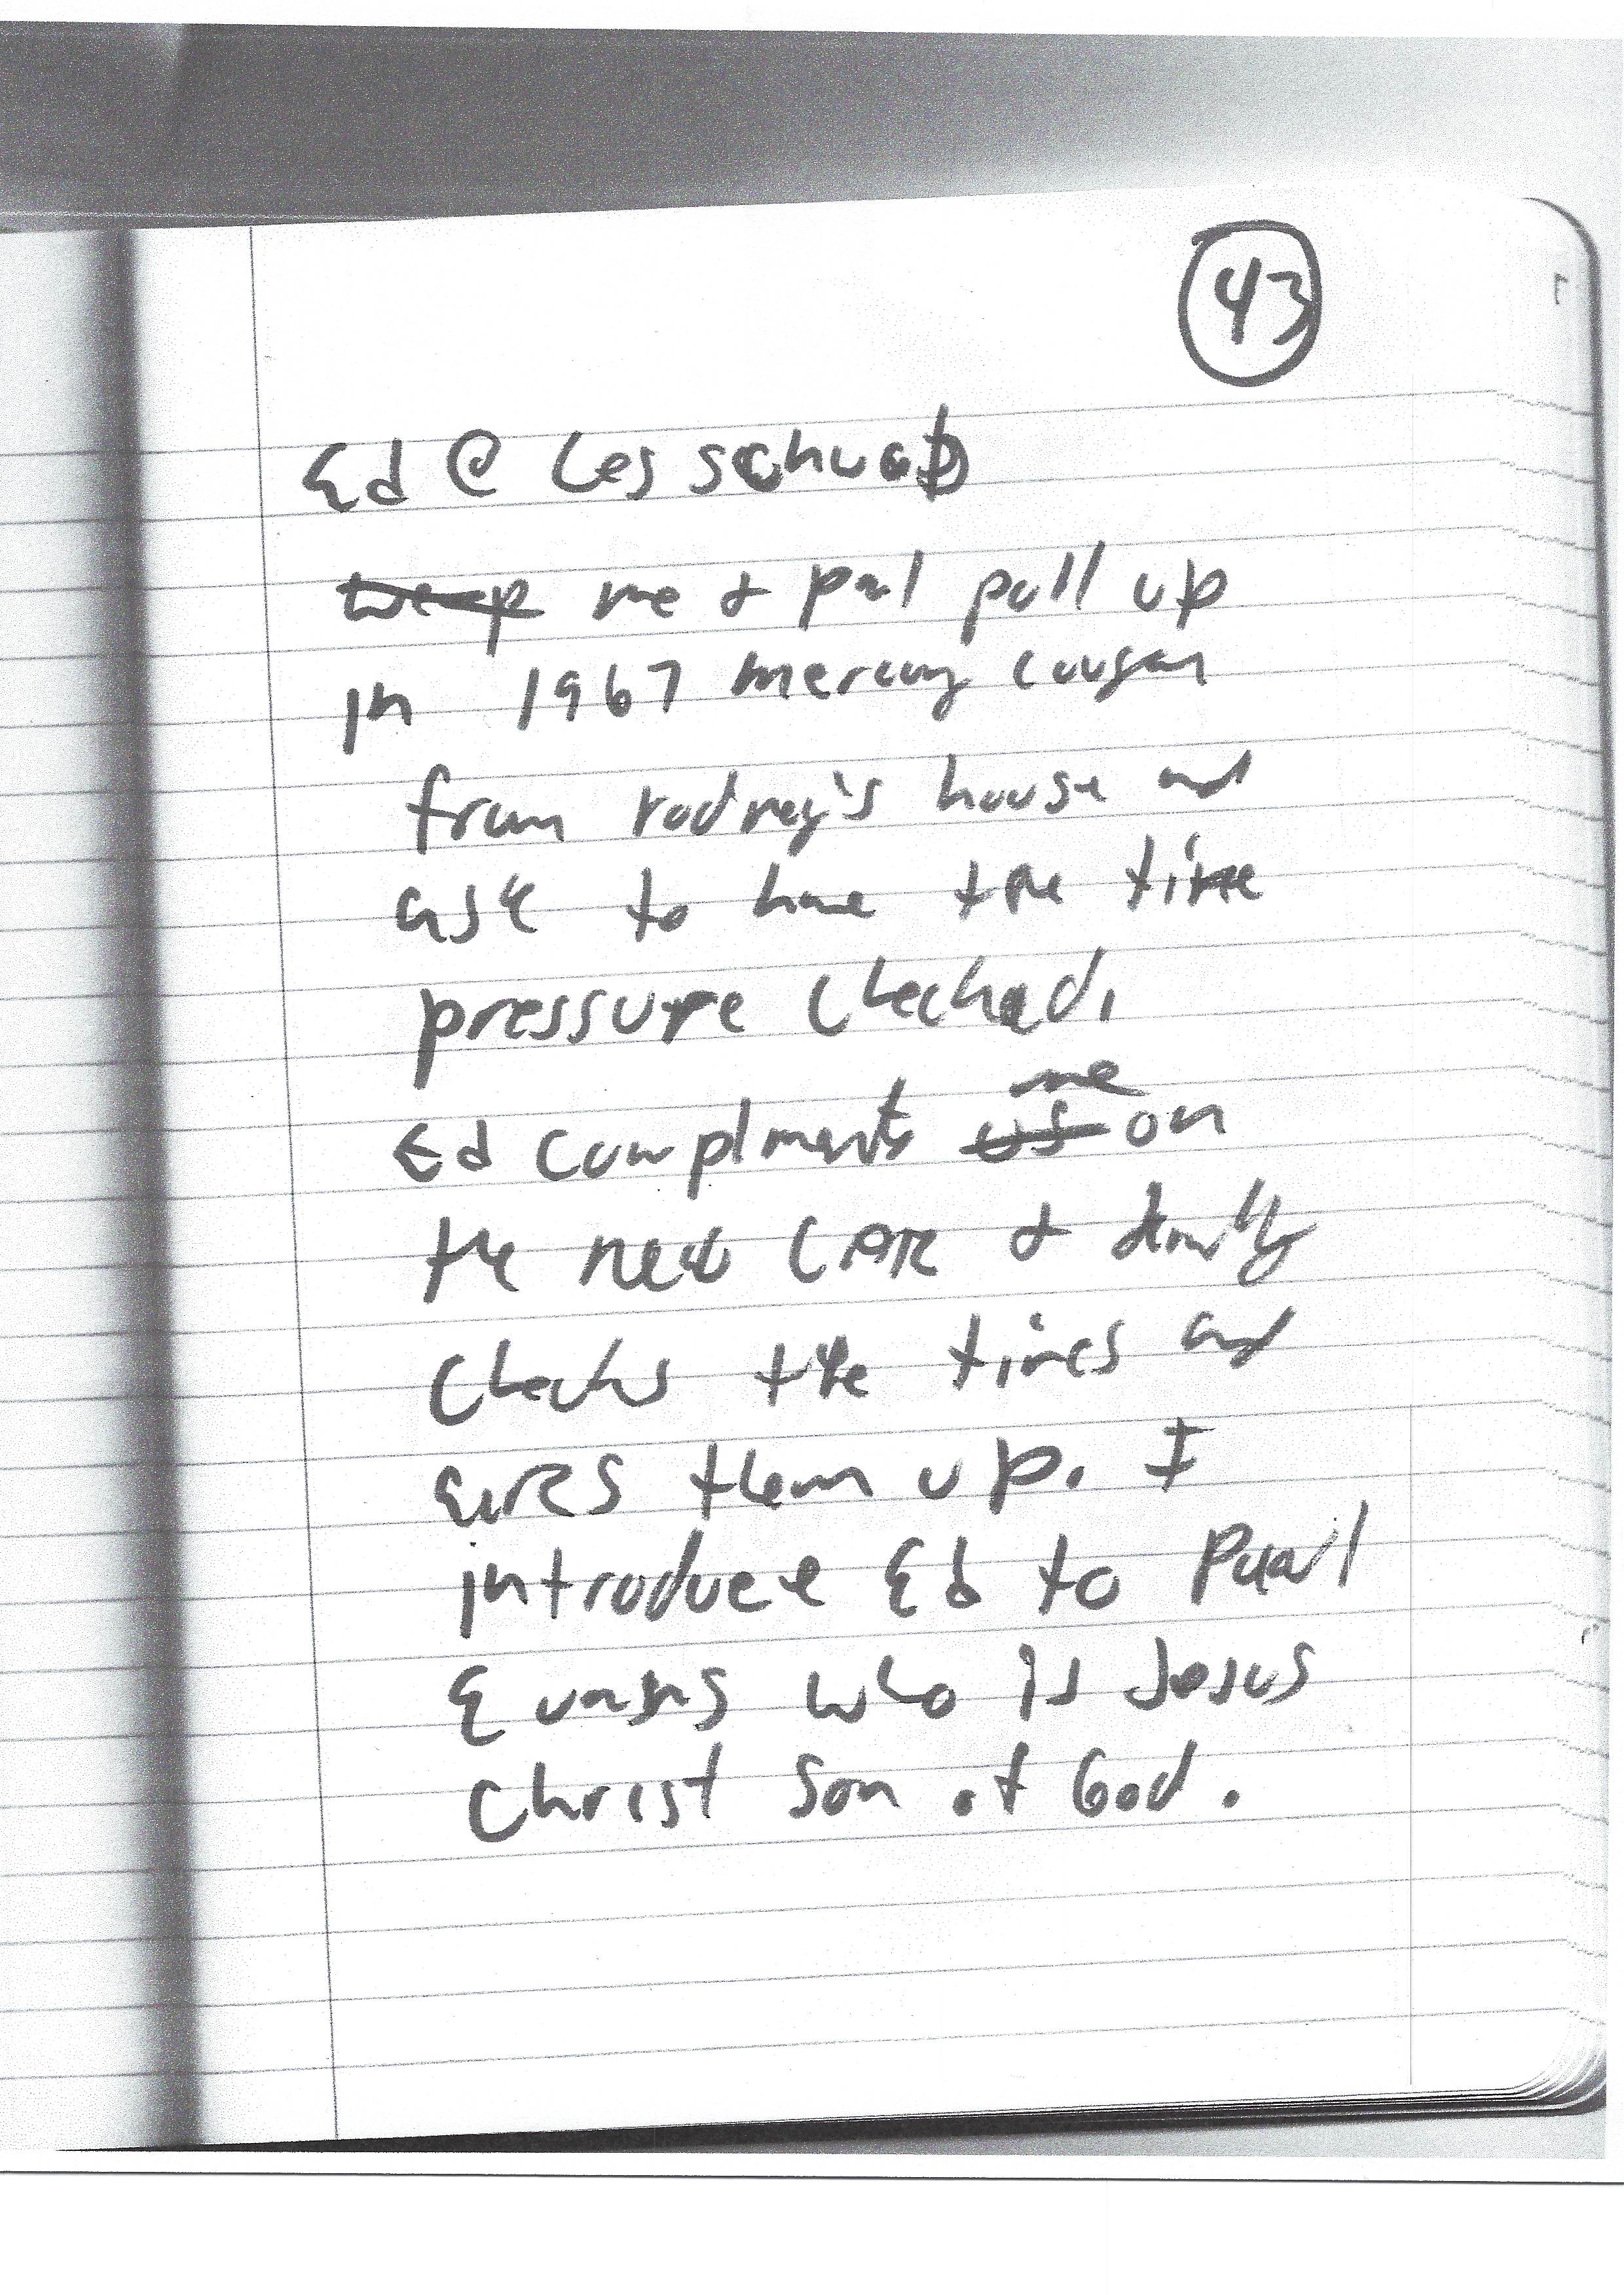 43
Ed @ Les Schwab
me & paul pull up
in 1967 mercury cougar
from rodney's house and
ask to have the tire
pressure checked.
me
Ed compliments us on
the new CAR &
checks the tires and
aires them up. I
introduce Ed to Paul
Evans who is Jesus
Christ Son of God.